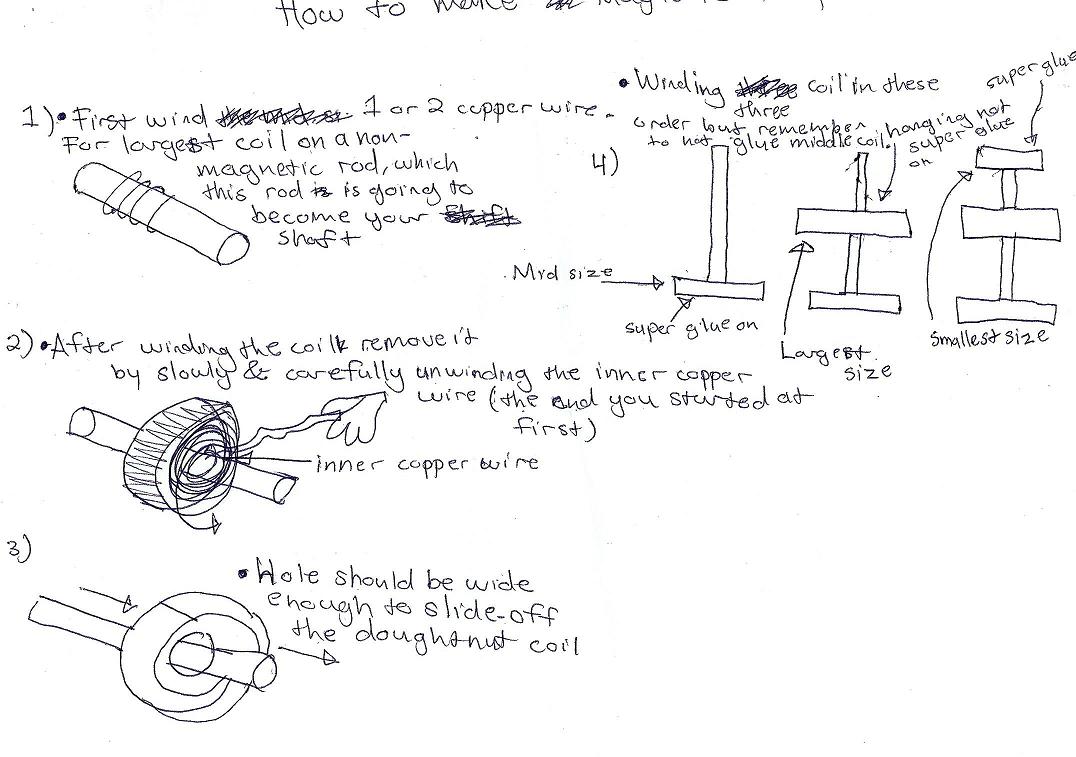 How to make
1) • First wind 1 or 2 copper wire.
For largest coil on a non-
magnetic rod, which
this rod is is going to
become your
shaft
2) • After winding the coil remove it
by slowly & carefully unwinding the inner copper
wire (the end you started at
first)
inner copper wire
3)
• Hole should be wide
enough to slide-off
the doughtnut coil
• Winding coil in these
three
order but remember
to not glue middle coil.
4)
hanging not
super glue
on
super glue
Mid size
super glue on
Largest
size
Smallest size